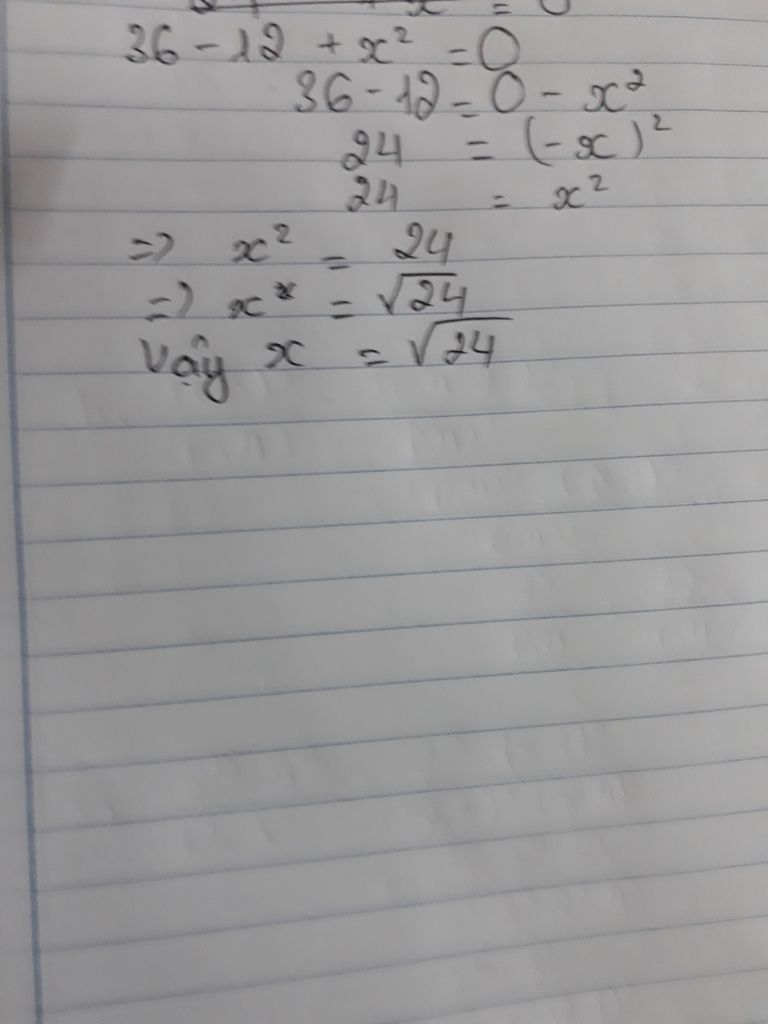 x = 0
36 - 12 + x² = 0
36 - 12 = 0 - x²
24 = (-x)²
24 = x²
=> x² = 24
=> x = √24
Vậy x = √24